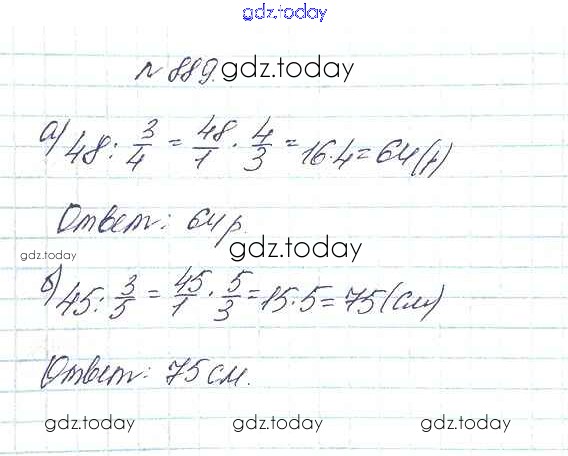 gdz.today
№ 889. gdz.today
а) 48 : 3/4 = 48/1 · 4/3 = 16·4 = 64 (р)
Ответ: 64 р.
gdz.today gdz.today
б) 45 : 3/5 = 45/1 · 5/3 = 15·5 = 75 (см)
Ответ: 75 см.
gdz.today gdz.today gdz.today